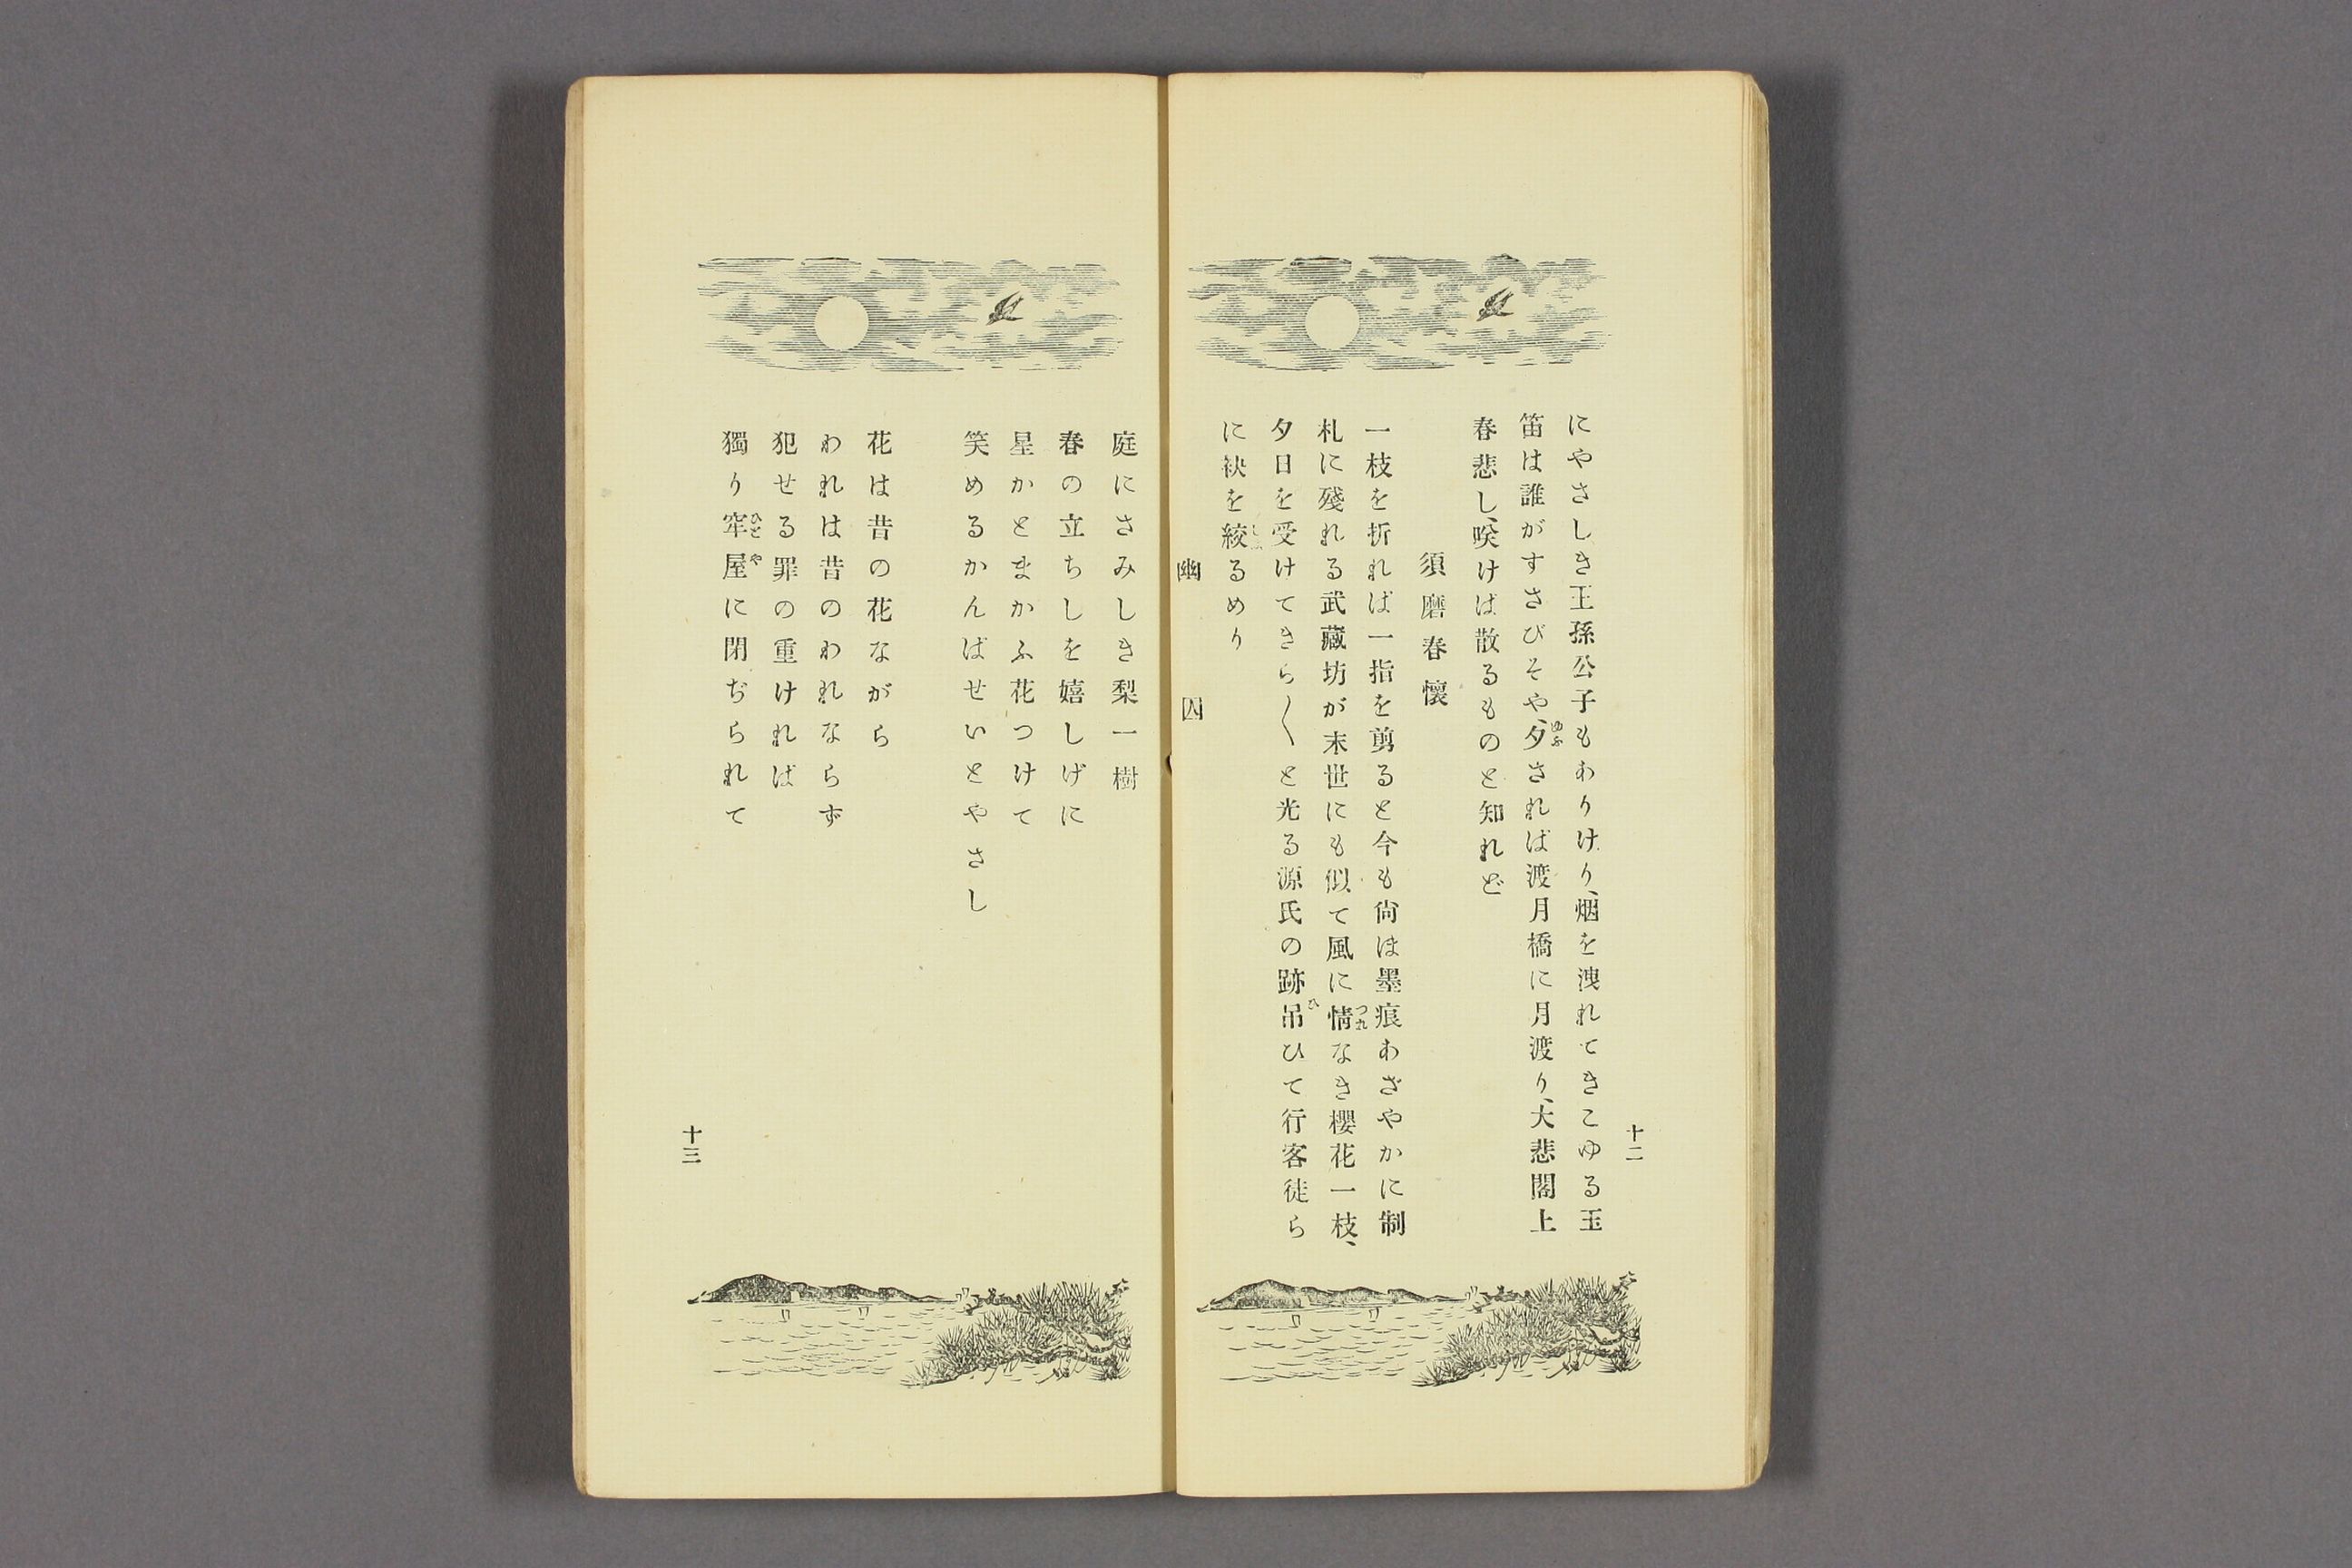 十二
にやさしき王孫公子もありけり、烟を洩れてきこゆる玉
笛は誰がすさびそや、夕されば渡月橋に月渡り、大悲閣上
春悲し、咲けば散るものと知れど
須磨春懷
一枝を折れば一指を剪ると今も尙ほ墨痕あざやかに制
札に殘れる武藏坊が末世にも似て風に情なき櫻花一枝、
夕日を受けてきら〱と光る源氏の跡吊ひて行客徒ら
に袂を絞るめり
幽囚
庭にさみしき梨一樹
春の立ちしを嬉しげに
星かとまがふ花つけて
笑めるかんばせいとやさし
花は昔の花ながら
われは昔のわれならず
犯せる罪の重ければ
獨り牢屋に閉ぢられて
十三